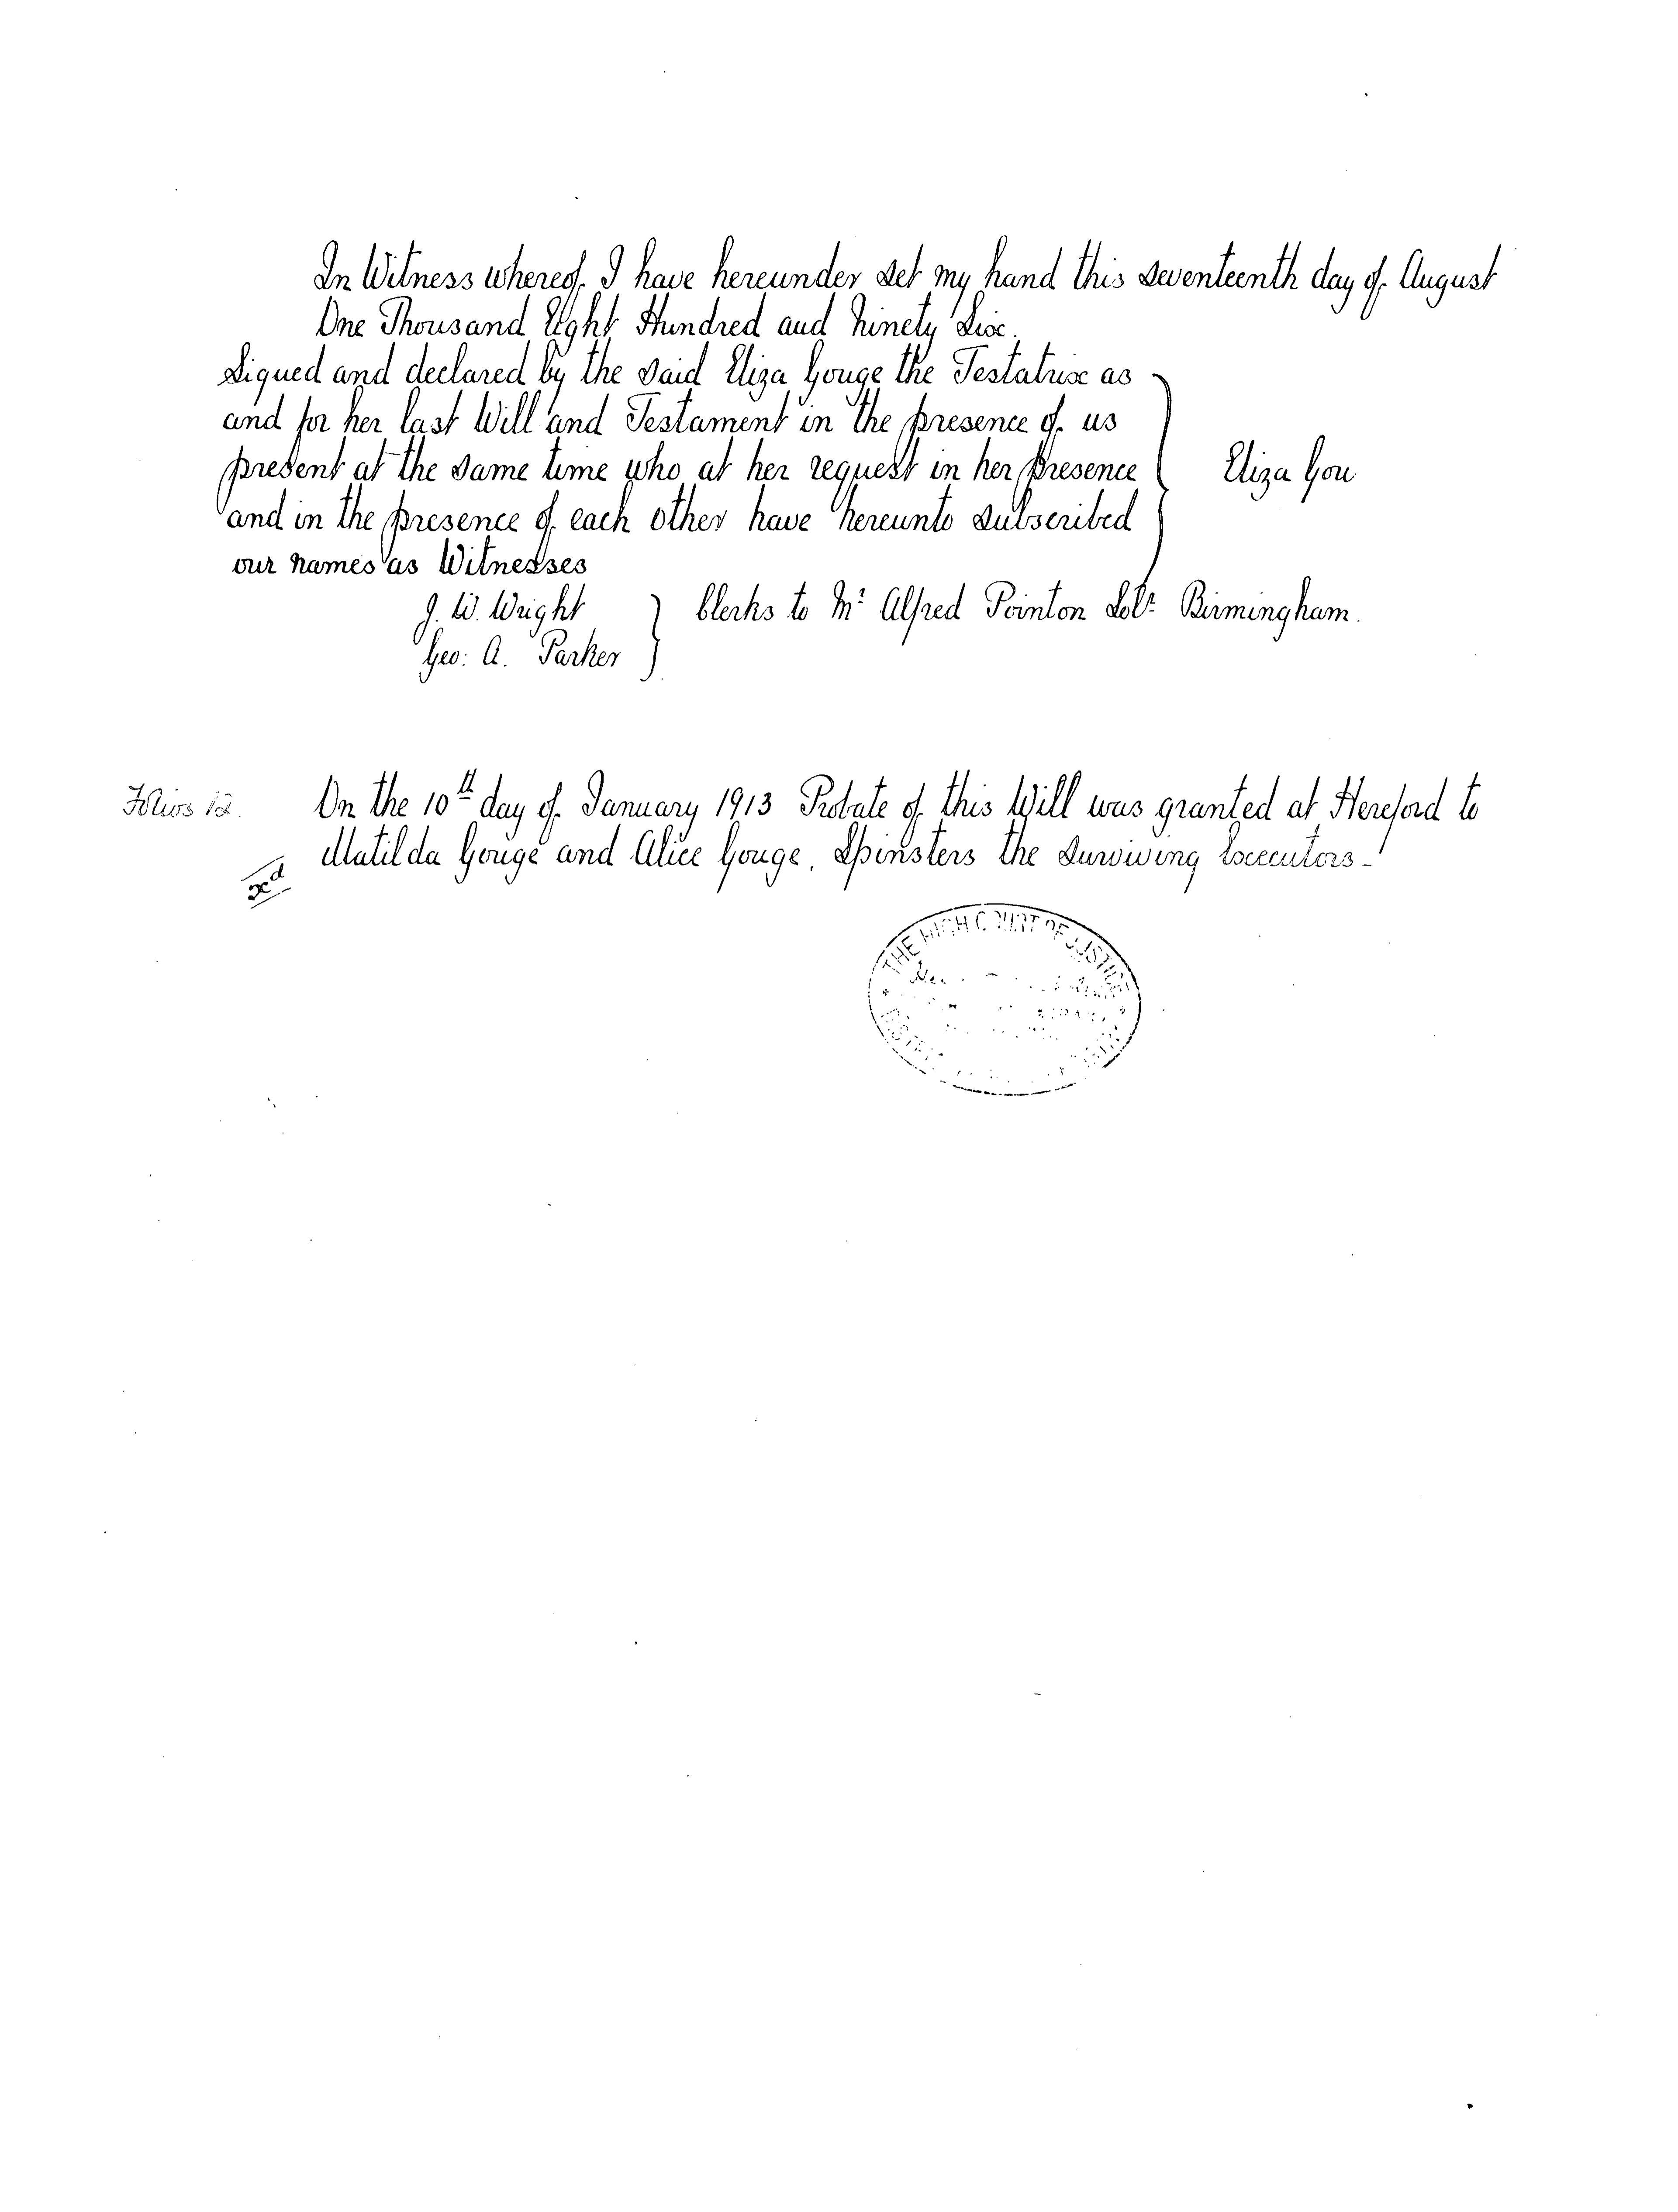 In Witness whereof I have hereunder set my hand this seventeenth day of August
One Thousand Eight Hundred and Ninety Six.
Signed and declared by the said Eliza Gouge the Testatrix as
and for her last Will and Testament in the presence of us
present at the same time who at her request in her presence
and in the presence of each other have hereunto subscribed
our names as Witnesses
Eliza Gou
J. W. Wright
Geo: A. Parker
Clerks to Mr Alfred Pointon Solr Birmingham.
Folios 12.
On the 10th day of January 1913 Probate of this Will was granted at Hereford to
Matilda Gouge and Alice Gouge, Spinsters the surviving Executors -
THE HIGH COURT OF JUSTICE